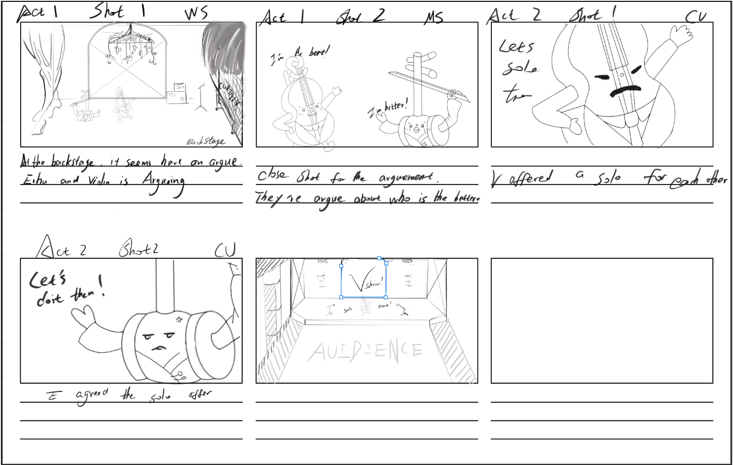 Act 1 Shot 1 WS
CURTAIN
Backstage
At the backstage, it seems have an argue.
Erhu and Violin is Arguing
Act 1 Shot 2 MS
I'm the best!
I'm better!
Close Shot for the arguement.
They're argue about who is the better
Act 2 Shot 1 CU
Let's
solo
V offered a solo for each other
Act 2 Shot 2 CU
Let's
do it then!
E agreed the solo offer
V
Solo
AUIDIENCE